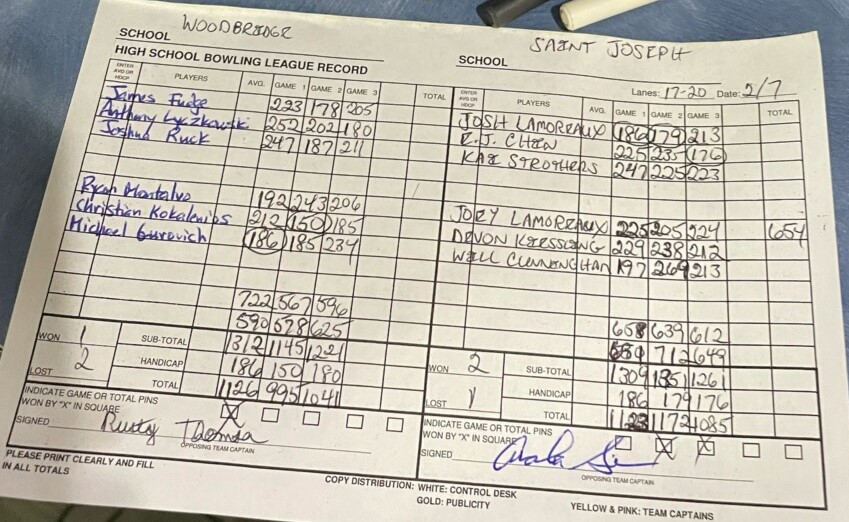 SCHOOL WOODBRIDGE
HIGH SCHOOL BOWLING LEAGUE RECORD
ENTER AVG OR HDCP PLAYERS AVG. GAME 1 GAME 2 GAME 3 TOTAL
James Fudge 223 178 205
Anthony Lyczkowski 252 202 180
Joshua Ruck 247 187 211
Ryan Montalvo 192 243 206
Christian Kokalenios 212 150 185
Michael Gurovich 186 185 234
722 567 596
590 578 625
WON 1 SUB-TOTAL 1312 1145 1221
LOST 2 HANDICAP 186 150 180
TOTAL 1126 995 1041
INDICATE GAME OR TOTAL PINS
WON BY "X" IN SQUARE X
SIGNED Rusty Thomsa
OPPOSING TEAM CAPTAIN
PLEASE PRINT CLEARLY AND FILL
IN ALL TOTALS
SCHOOL SAINT JOSEPH
Lanes: 17-20 Date: 2/7
ENTER AVG OR HDCP PLAYERS AVG. GAME 1 GAME 2 GAME 3 TOTAL
JOSH LAMOREAUX 186 179 213
E.J. CHEN 225 235 176
KAI STROTHERS 247 225 223
JOEY LAMOREAUX 225 205 224 654
DEVON KIESSLING 229 238 212
WILL CUNNINGHAM 197 269 213
658 639 612
712 649
WON 2 SUB-TOTAL 1309 1351 1261
LOST 1 HANDICAP 186 179 176
TOTAL 1123 1172 1085
INDICATE GAME OR TOTAL PINS
WON BY "X" IN SQUARE X X
SIGNED
OPPOSING TEAM CAPTAIN
COPY DISTRIBUTION: WHITE: CONTROL DESK
GOLD: PUBLICITY
YELLOW & PINK: TEAM CAPTAINS